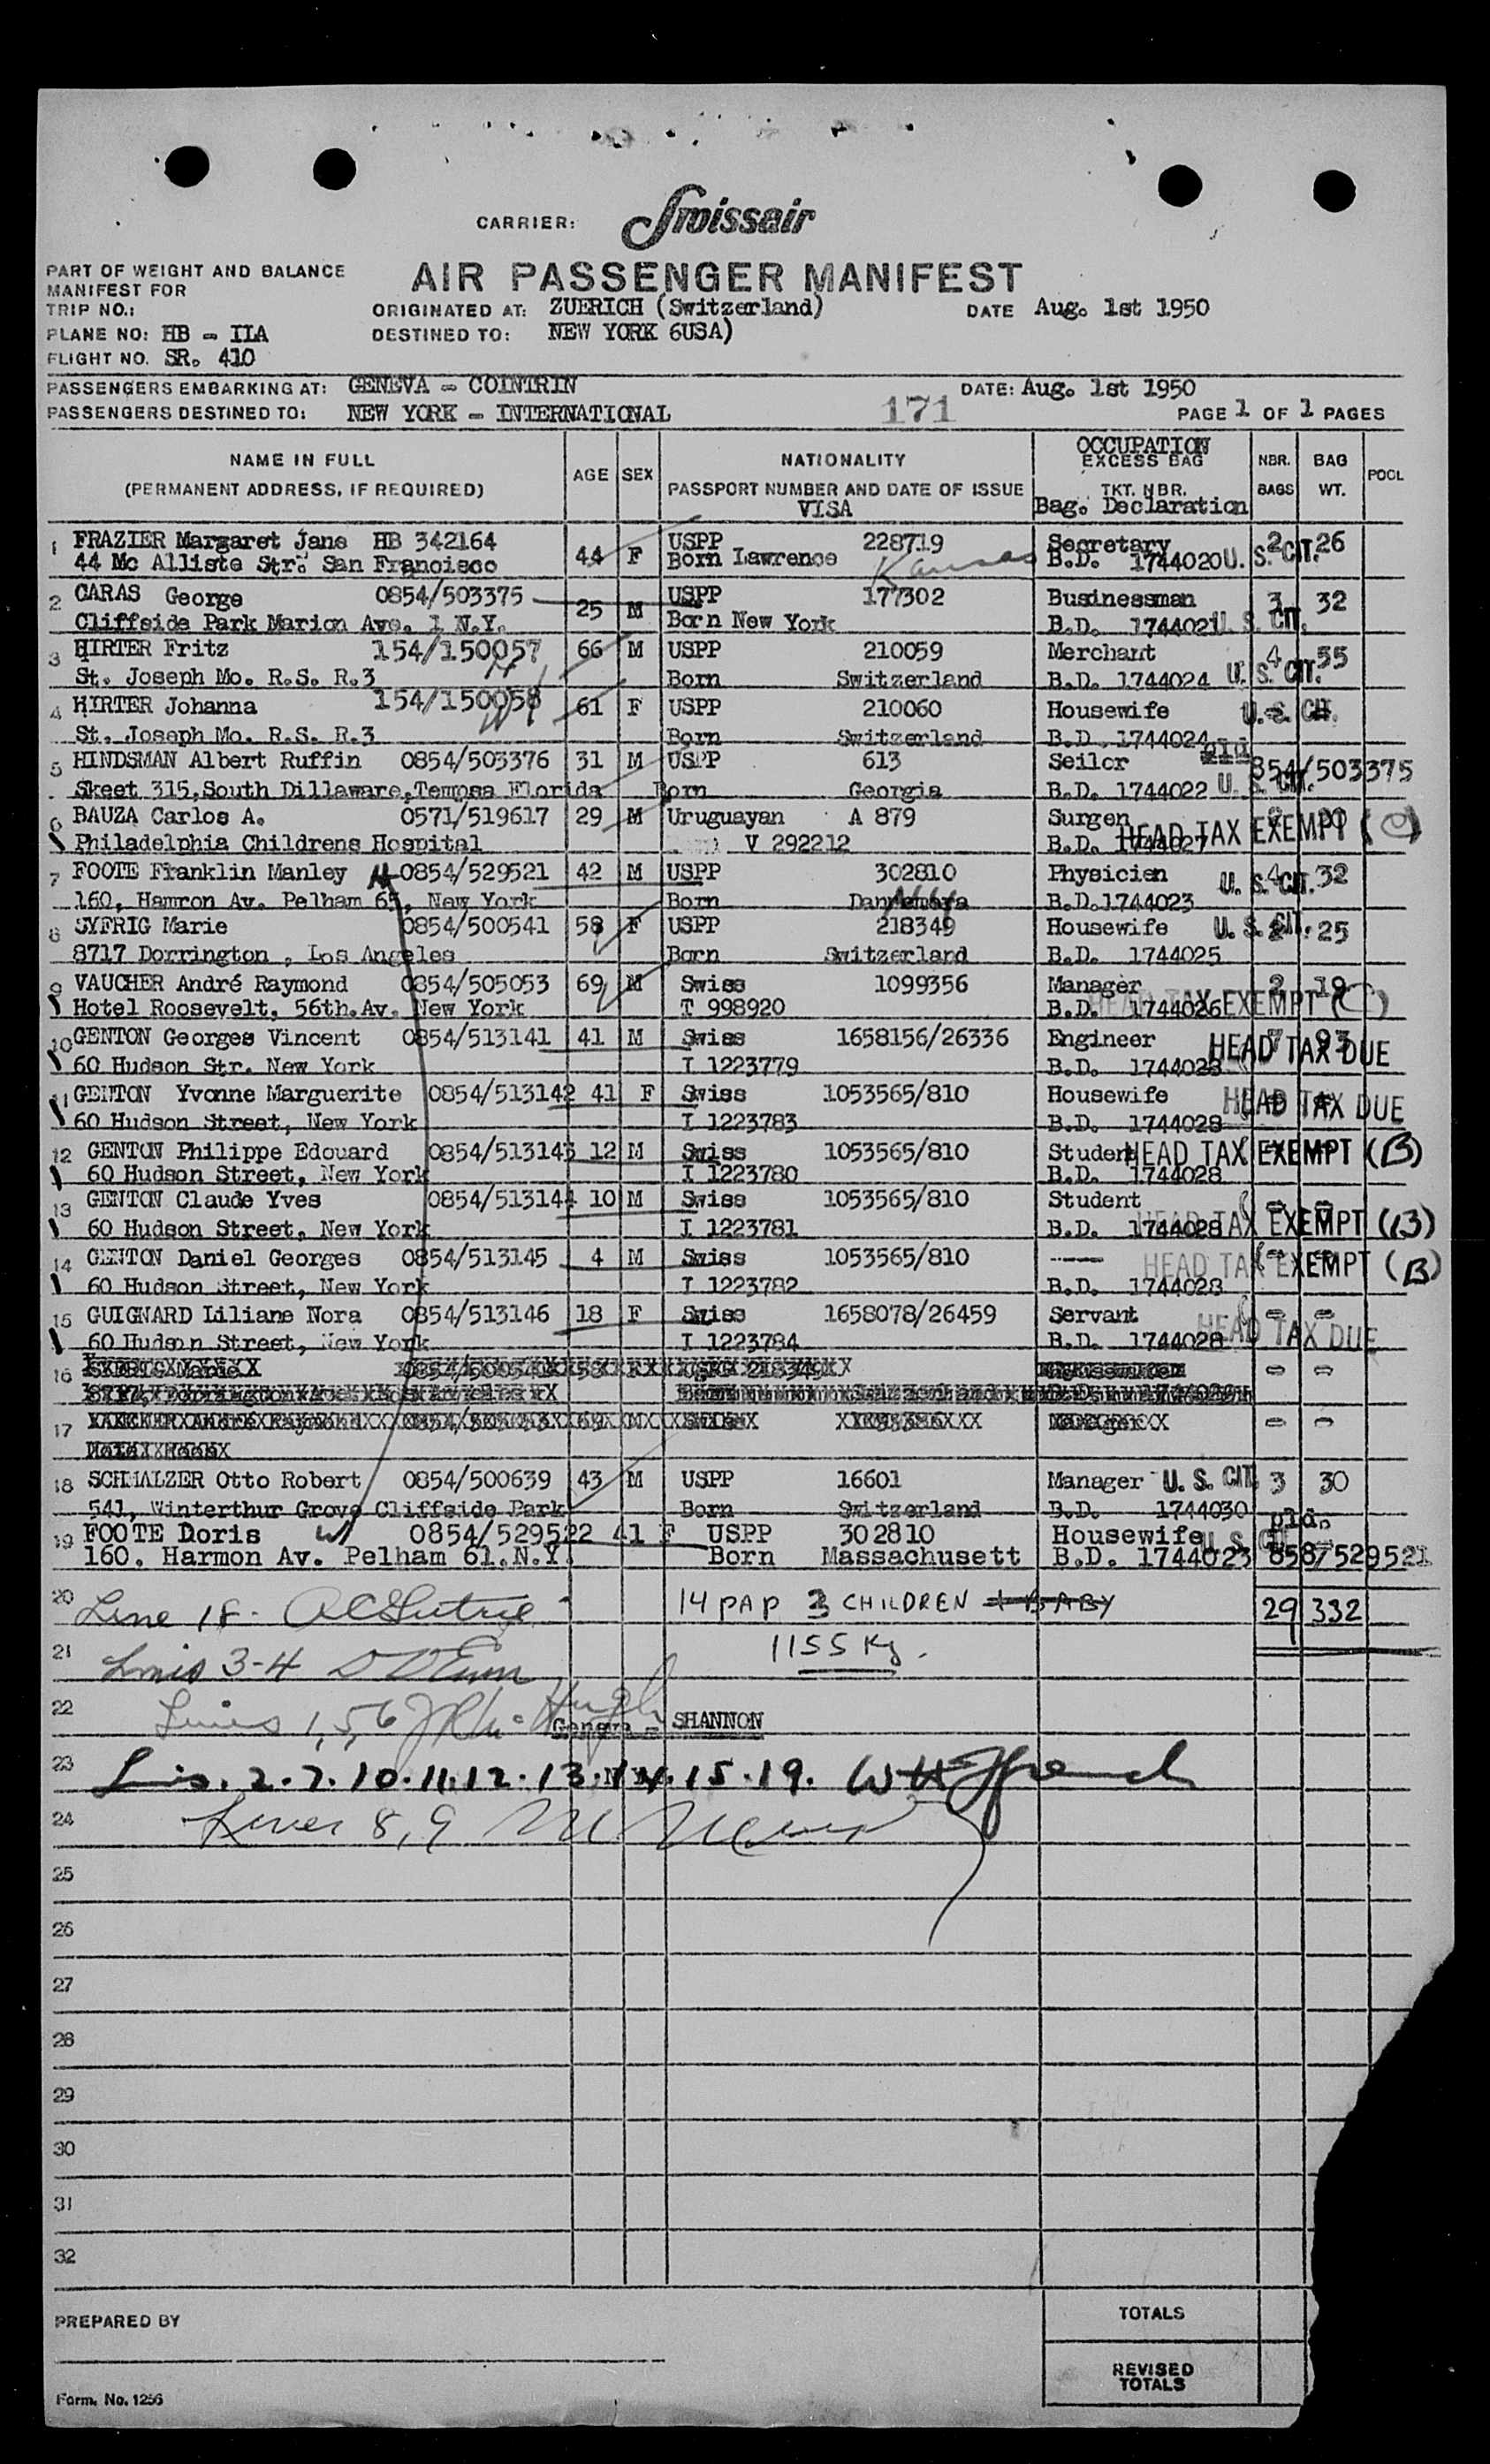 CARRIER: Swissair
PART OF WEIGHT AND BALANCE
MANIFEST FOR
AIR PASSENGER MANIFEST
TRIP NO.: ORIGINATED AT: ZUERICH (Switzerland) DATE Aug. 1st 1950
PLANE NO: HB - IIA DESTINED TO: NEW YORK 6USA)
FLIGHT NO. SR. 410
PASSENGERS EMBARKING AT: GENEVA - COINTRIN DATE: Aug. 1st 1950
PASSENGERS DESTINED TO: NEW YORK - INTERNATIONAL 171 PAGE 1 OF 1 PAGES
NAME IN FULL AGE SEX NATIONALITY OCCUPATION EXCESS BAG NBR. BAG POOL
(PERMANENT ADDRESS, IF REQUIRED) PASSPORT NUMBER AND DATE OF ISSUE TKT. NBR. BAGS WT.
VISA Bag. Declaration
1 FRAZIER Margaret Jane HB 342164 44 F USPP 228719 Secretary 2 26
44 Mc Alliste Str. San Francisco Born Lawrence Kansas B.D. 1744020 U. S. CIT.
2 CARAS George 0854/503375 25 M USPP 177302 Businessman 3 32
Cliffside Park Marion Ave. 1 N.Y. Born New York B.D. 1744021 U. S. CIT.
3 HIRTER Fritz 154/150057 66 M USPP 210059 Merchant 4 55
St. Joseph Mo. R.S. R.3 Born Switzerland B.D. 1744024 U. S. CIT.
4 HIRTER Johanna 154/150058 61 F USPP 210060 Housewife U. S. CIT.
St. Joseph Mo. R.S. R.3 Born Switzerland B.D. 1744024
5 HINDSMAN Albert Ruffin 0854/503376 31 M USPP 613 Seilor pld 854/503375
Skeet 315, South Dillaware, Tempsa Florida Born Georgia B.D. 1744022 U. S. CIT.
6 BAUZA Carlos A. 0571/519617 29 M Uruguayan A 879 Surgen HEAD TAX EXEMPT (C)
Philadelphia Childrens Hospital V 292212 B.D. 1744027
7 FOOTE Franklin Manley 0854/529521 42 M USPP 302810 Physicien 4 32
160, Hamron Av. Pelham 65, New York Born Dannemora B.D. 1744023 U. S. CIT.
8 SYFRIG Marie 0854/500541 58 F USPP 218349 Housewife U. S. CIT. 25
8717 Dorrington , Los Angeles Born Switzerland B.D. 1744025
9 VAUCHER André Raymond 0854/505053 69 M Swiss 1099356 Manager 2 19
Hotel Roosevelt, 56th.Av. New York T 998920 B.D. 1744026 HEAD TAX EXEMPT (C)
10 GENTON Georges Vincent 0854/513141 41 M Swiss 1658156/26336 Engineer 7 93
60 Hudson Str. New York I 1223779 B.D. 1744028 HEAD TAX DUE
11 GENTON Yvonne Marguerite 0854/513142 41 F Swiss 1053565/810 Housewife HEAD TAX DUE
60 Hudson Street, New York I 1223783 B.D. 1744028
12 GENTON Philippe Edouard 0854/513143 12 M Swiss 1053565/810 Student HEAD TAX EXEMPT (B)
60 Hudson Street, New York I 1223780 B.D. 1744028
13 GENTON Claude Yves 0854/513144 10 M Swiss 1053565/810 Student - -
60 Hudson Street, New York I 1223781 B.D. 1744028 HEAD TAX EXEMPT (B)
14 GENTON Daniel Georges 0854/513145 4 M Swiss 1053565/810 ---- HEAD TAX EXEMPT (B)
60 Hudson Street, New York I 1223782 B.D. 1744028
15 GUIGNARD Liliane Nora 0854/513146 18 F Swiss 1658078/26459 Servant - -
60 Hudson Street, New York I 1223784 B.D. 1744028 HEAD TAX DUE
16 - -
17 - -
18 SCHMALZER Otto Robert 0854/500639 43 M USPP 16601 Manager U. S. CIT. 3 30
541, Winterthur Grove Cliffside Park Born Switzerland B.D. 1744030
19 FOOTE Doris 0854/529522 41 F USPP 302810 Housewife U. S. CIT. pld.
160, Harmon Av. Pelham 61, N.Y. Born Massachusett B.D. 1744023 858/529521
20 Line 18. 14 PAP 3 CHILDREN + BABY 29 332
21 Lines 3-4 1155 Kg.
22 Lines 1,5,6 Geneva - SHANNON
23 Lines. 2.7.10.11.12.13.14.15.19.
24 Lines 8,9
25
26
27
28
29
30
31
32
PREPARED BY TOTALS
REVISED
TOTALS
Form. No. 1256